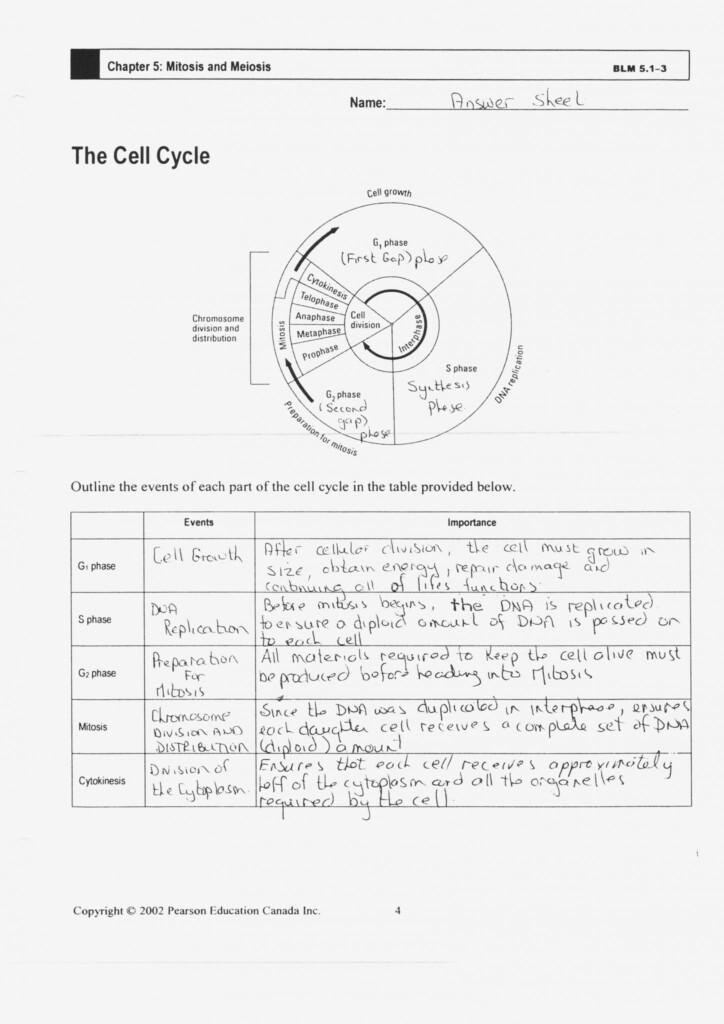 Chapter 5: Mitosis and Meiosis
BLM 5.1-3
Name: Answer Sheet
The Cell Cycle
Cell growth
G1 phase
(First Gap) phase
Cytokinesis
Telophase
Anaphase
Metaphase
Prophase
Mitosis
Cell
division
Interphase
Chromosome
division and
distribution
S phase
Synthesis
Phase
DNA replication
G2 phase
(Second
gap)
phase
Preparation for mitosis
Outline the events of each part of the cell cycle in the table provided below.
Events
Importance
G1 phase
Cell Growth
After cellular division, the cell must grow in
size, obtain energy, repair damage and
continuing all of lifes functions.
S phase
DNA
Replication
Before mitosis begins, the DNA is replicated
to ensure a diploid amount of DNA is passed on
to each cell
G2 phase
Preparation
For
Mitosis
All materials required to keep the cell alive must
be produced before heading into Mitosis
Mitosis
Chromosome
DIVISION AND
DISTRIBUTION
Since the DNA was duplicated in interphase, ensures
each daughter cell receives a complete set of DNA
(diploid) amount
Cytokinesis
Division of
the Cytoplasm.
Ensures that each cell receives approximately
half of the cytoplasm and all the organelles
required by the cell.
Copyright © 2002 Pearson Education Canada Inc.
4